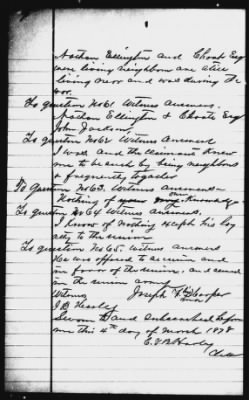 Nathan Ellington & Choat Esq
were living neighbors are still
living near and was during the
war.
To question No 61 Witness answers.
Nathan Ellington & Choate Esq
John Jackson,
To question No 62 Witness answered
I was and the claimants knew
me to be such by being neighbors
& frequently together
To question No 63. Witness answered
Nothing of my own knowledge
To question No 64 Witness answers.
I know of nothing except his loy
alty to the union
To question No 65. Witness answered
He was opposed to secession and
in favor of the union, and served
in the union army
Witness Joseph Hooper
J B Heasley
Sworn to and subscribed before
me this 4th day of March 1878